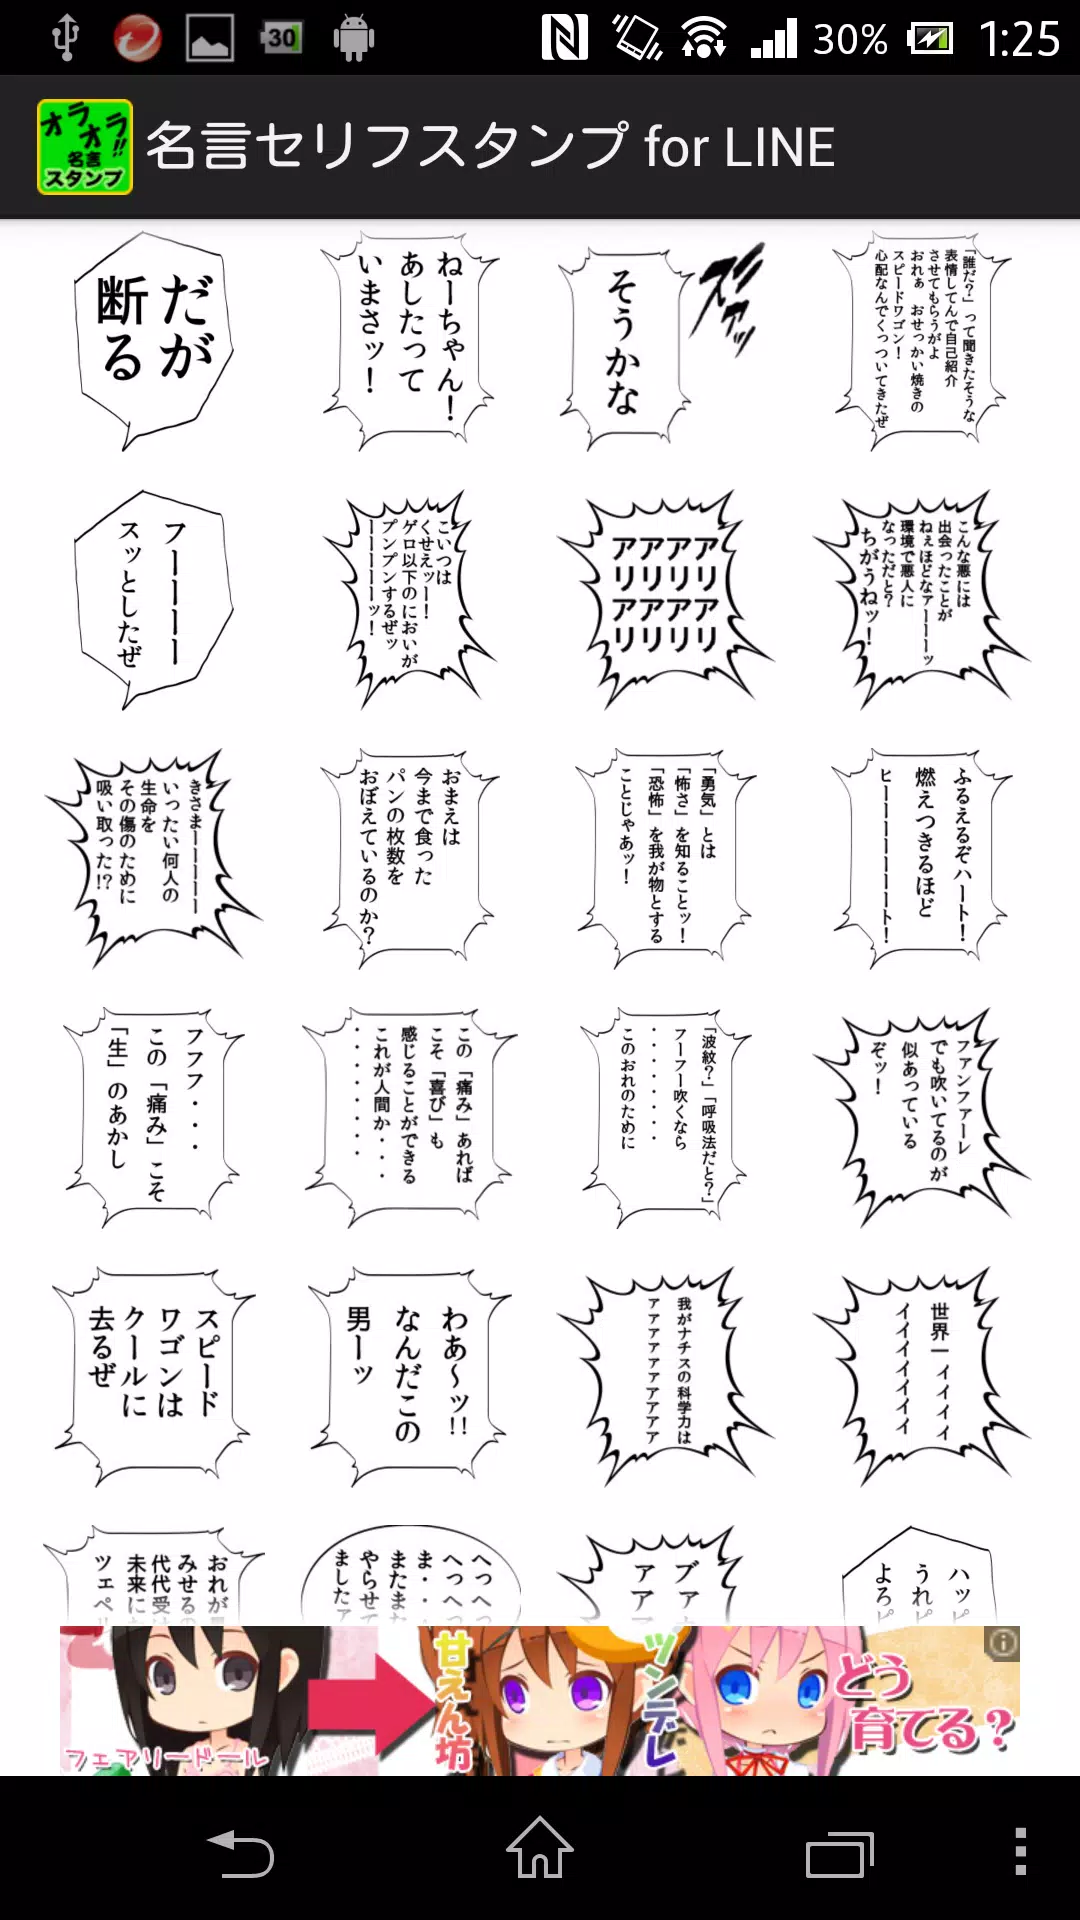 30
30%
1:25
オラオラ!!
名言
スタンプ
名言セリフスタンプ for LINE
だが
断る
ねーちゃん！
あしたって
いまさッ！
そうかな
ズアッ
「誰だ？」って聞きたそうな
表情してんで自己紹介
させてもらうがよ
おれぁ　おせっかい焼きの
スピードワゴン！
心配なんでくっついてきたぜ
フーーーー
スッとしたぜ
こいつは
くせえッー！
ゲロ以下のにおいが
プンプンするぜッ
ーーーーーーッ！
アリアリ
アリアリ
アリアリ
アリアリ
こんな悪には
出会ったことが
ねぇほどなアーーーッ
環境で悪人に
なっただと？
ちがうねッ！
きさまーーーーー
いったい何人の
生命を
その傷のために
吸い取った!?
おまえは
今まで食った
パンの枚数を
おぼえているのか？
「勇気」とは
「怖さ」を知ることッ！
「恐怖」を我が物とする
ことじゃあッ！
ふるえるぞハート！
燃えつきるほど
ヒーーーーーーート！
フフフ・・・
この「痛み」こそ
「生」のあかし
この「痛み」あれば
こそ「喜び」も
感じることができる
これが人間か・・・
・・・・・・・・
「波紋？」「呼吸法だと？」
フーフー吹くなら
・・・・・・・
このおれのために
ファンファーレ
でも吹いてるのが
似あっている
ぞッ！
スピード
ワゴンは
クールに
去るぜ
わあ〜ッ!!
なんだこの
男ーッ
我がナチスの科学力は
アァァァァァァァァァ
世界一ィィィィ
イイイイイイイ
おれが
みせるの
代代受け
未来に
ツェペリ
へっへっ
へっへっ
ま・・・
またまた
やらせて
ましたァ
ブァ
ァアア
ハッピ
うれピ
よろピ
フェアリードール
甘えん坊
ツンデレ
どう
育てる？